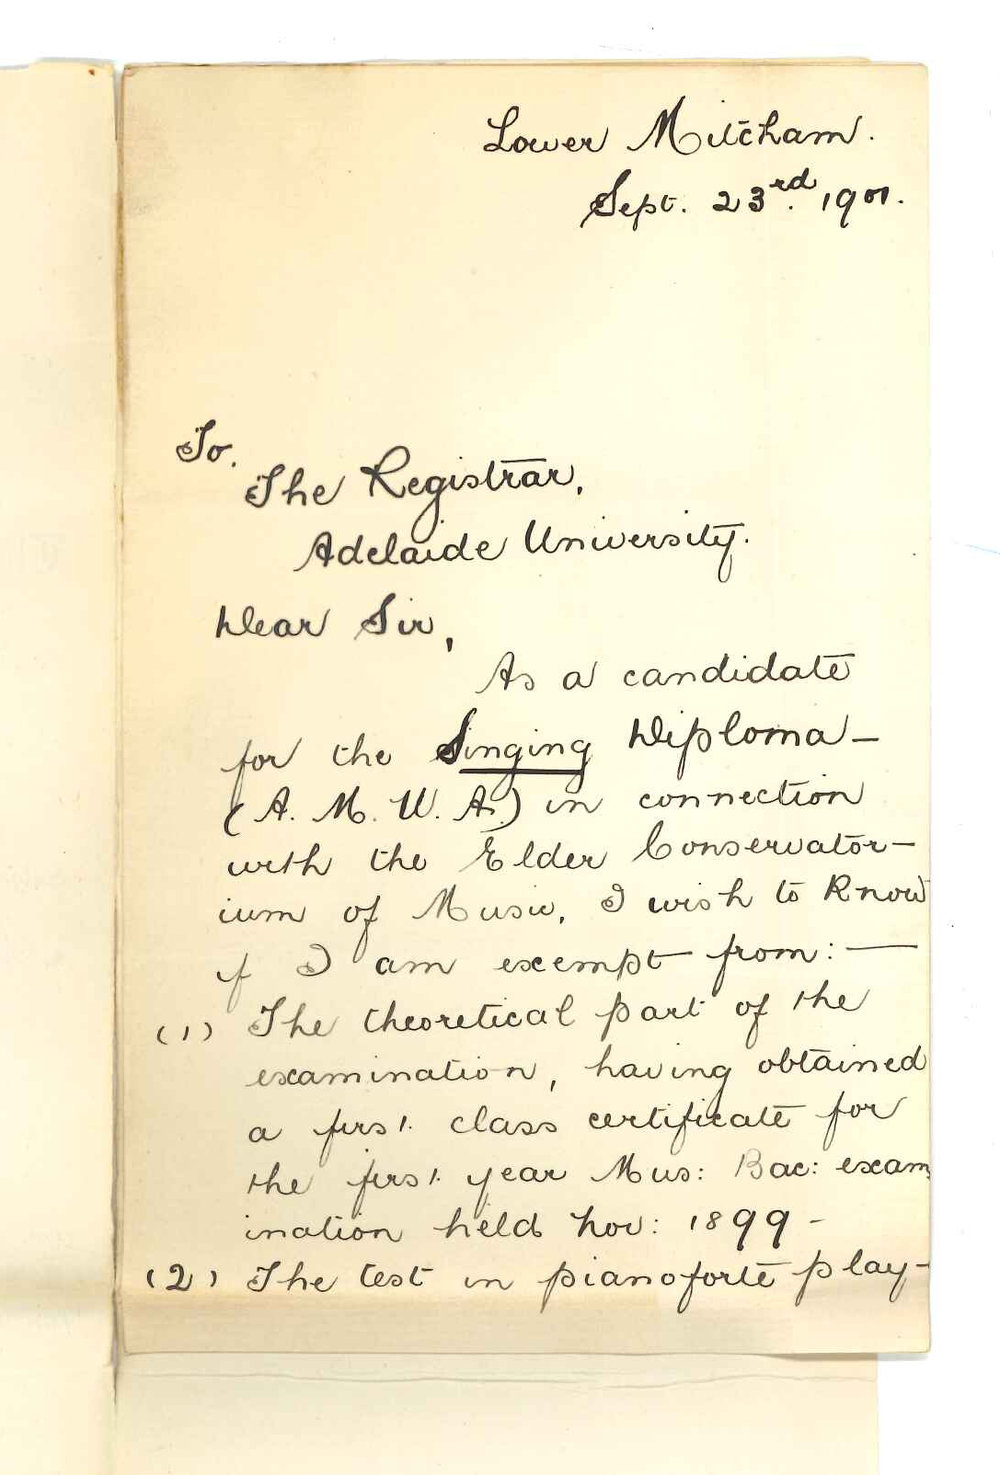 Lower Mitcham.
Sept. 23rd. 1901.
To.
The Registrar,
Adelaide University.
Dear Sir,
As a candidate
for the Singing Diploma -
(A. M. U. A.) in connection
with the Elder Conservator-
ium of Music, I wish to know
if I am exempt from: -
(1) The theoretical part of the
examination, having obtained
a first class certificate for
the first year Mus: Bac: exam
ination held Nov: 1899 -
(2) The test in pianoforte play-